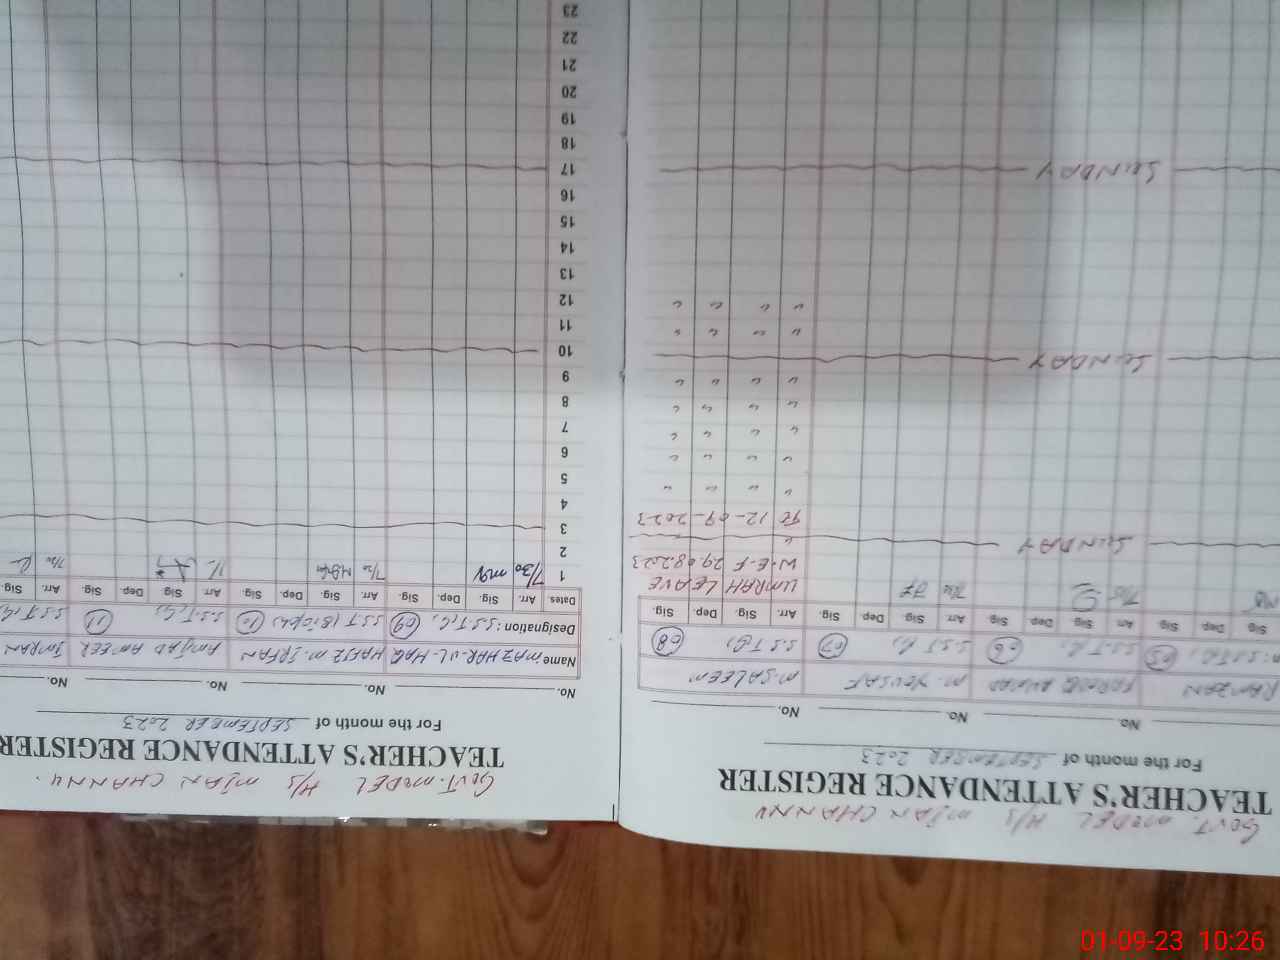 GOVT. MODEL H/S MIAN CHANNU
TEACHER'S ATTENDANCE REGISTER
For the month of SEPTEMBER 2023
No. No. No.
RAMZAN FAROOQ AHMAD M. YOUSAF M. SALEEM
65 S.S.T. 66 S.S.T. 67 S.S.T. 68
Sig. Dep. Sig. Arr. Sig. Dep. Sig. Arr. Sig. Dep. Sig. Arr. Sig. Dep. Sig.
UMRAH LEAVE
W.E.F 29.08.2023
SUNDAY
TO 12-09-2023
SUNDAY
SUNDAY
GOVT. MODEL H/S MIAN CHANNU.
TEACHER'S ATTENDANCE REGISTER
For the month of SEPTEMBER 2023
No. No. No. No.
Name MAZHAR-UL-HAQ HAFIZ M. IRFAN AMJAD AMEER IMRAN
Designation: S.S.T, 69 S.S.T 70 S.S.T, 71 S.S.T
Dates Arr. Sig. Dep. Sig. Arr. Sig. Dep. Sig. Arr. Sig. Dep. Sig. Arr. Sig.
1 7/30
2
3
4
5
6
7
8
9
10
11
12
13
14
15
16
17
18
19
20
21
22
23
01-09-23 10:26